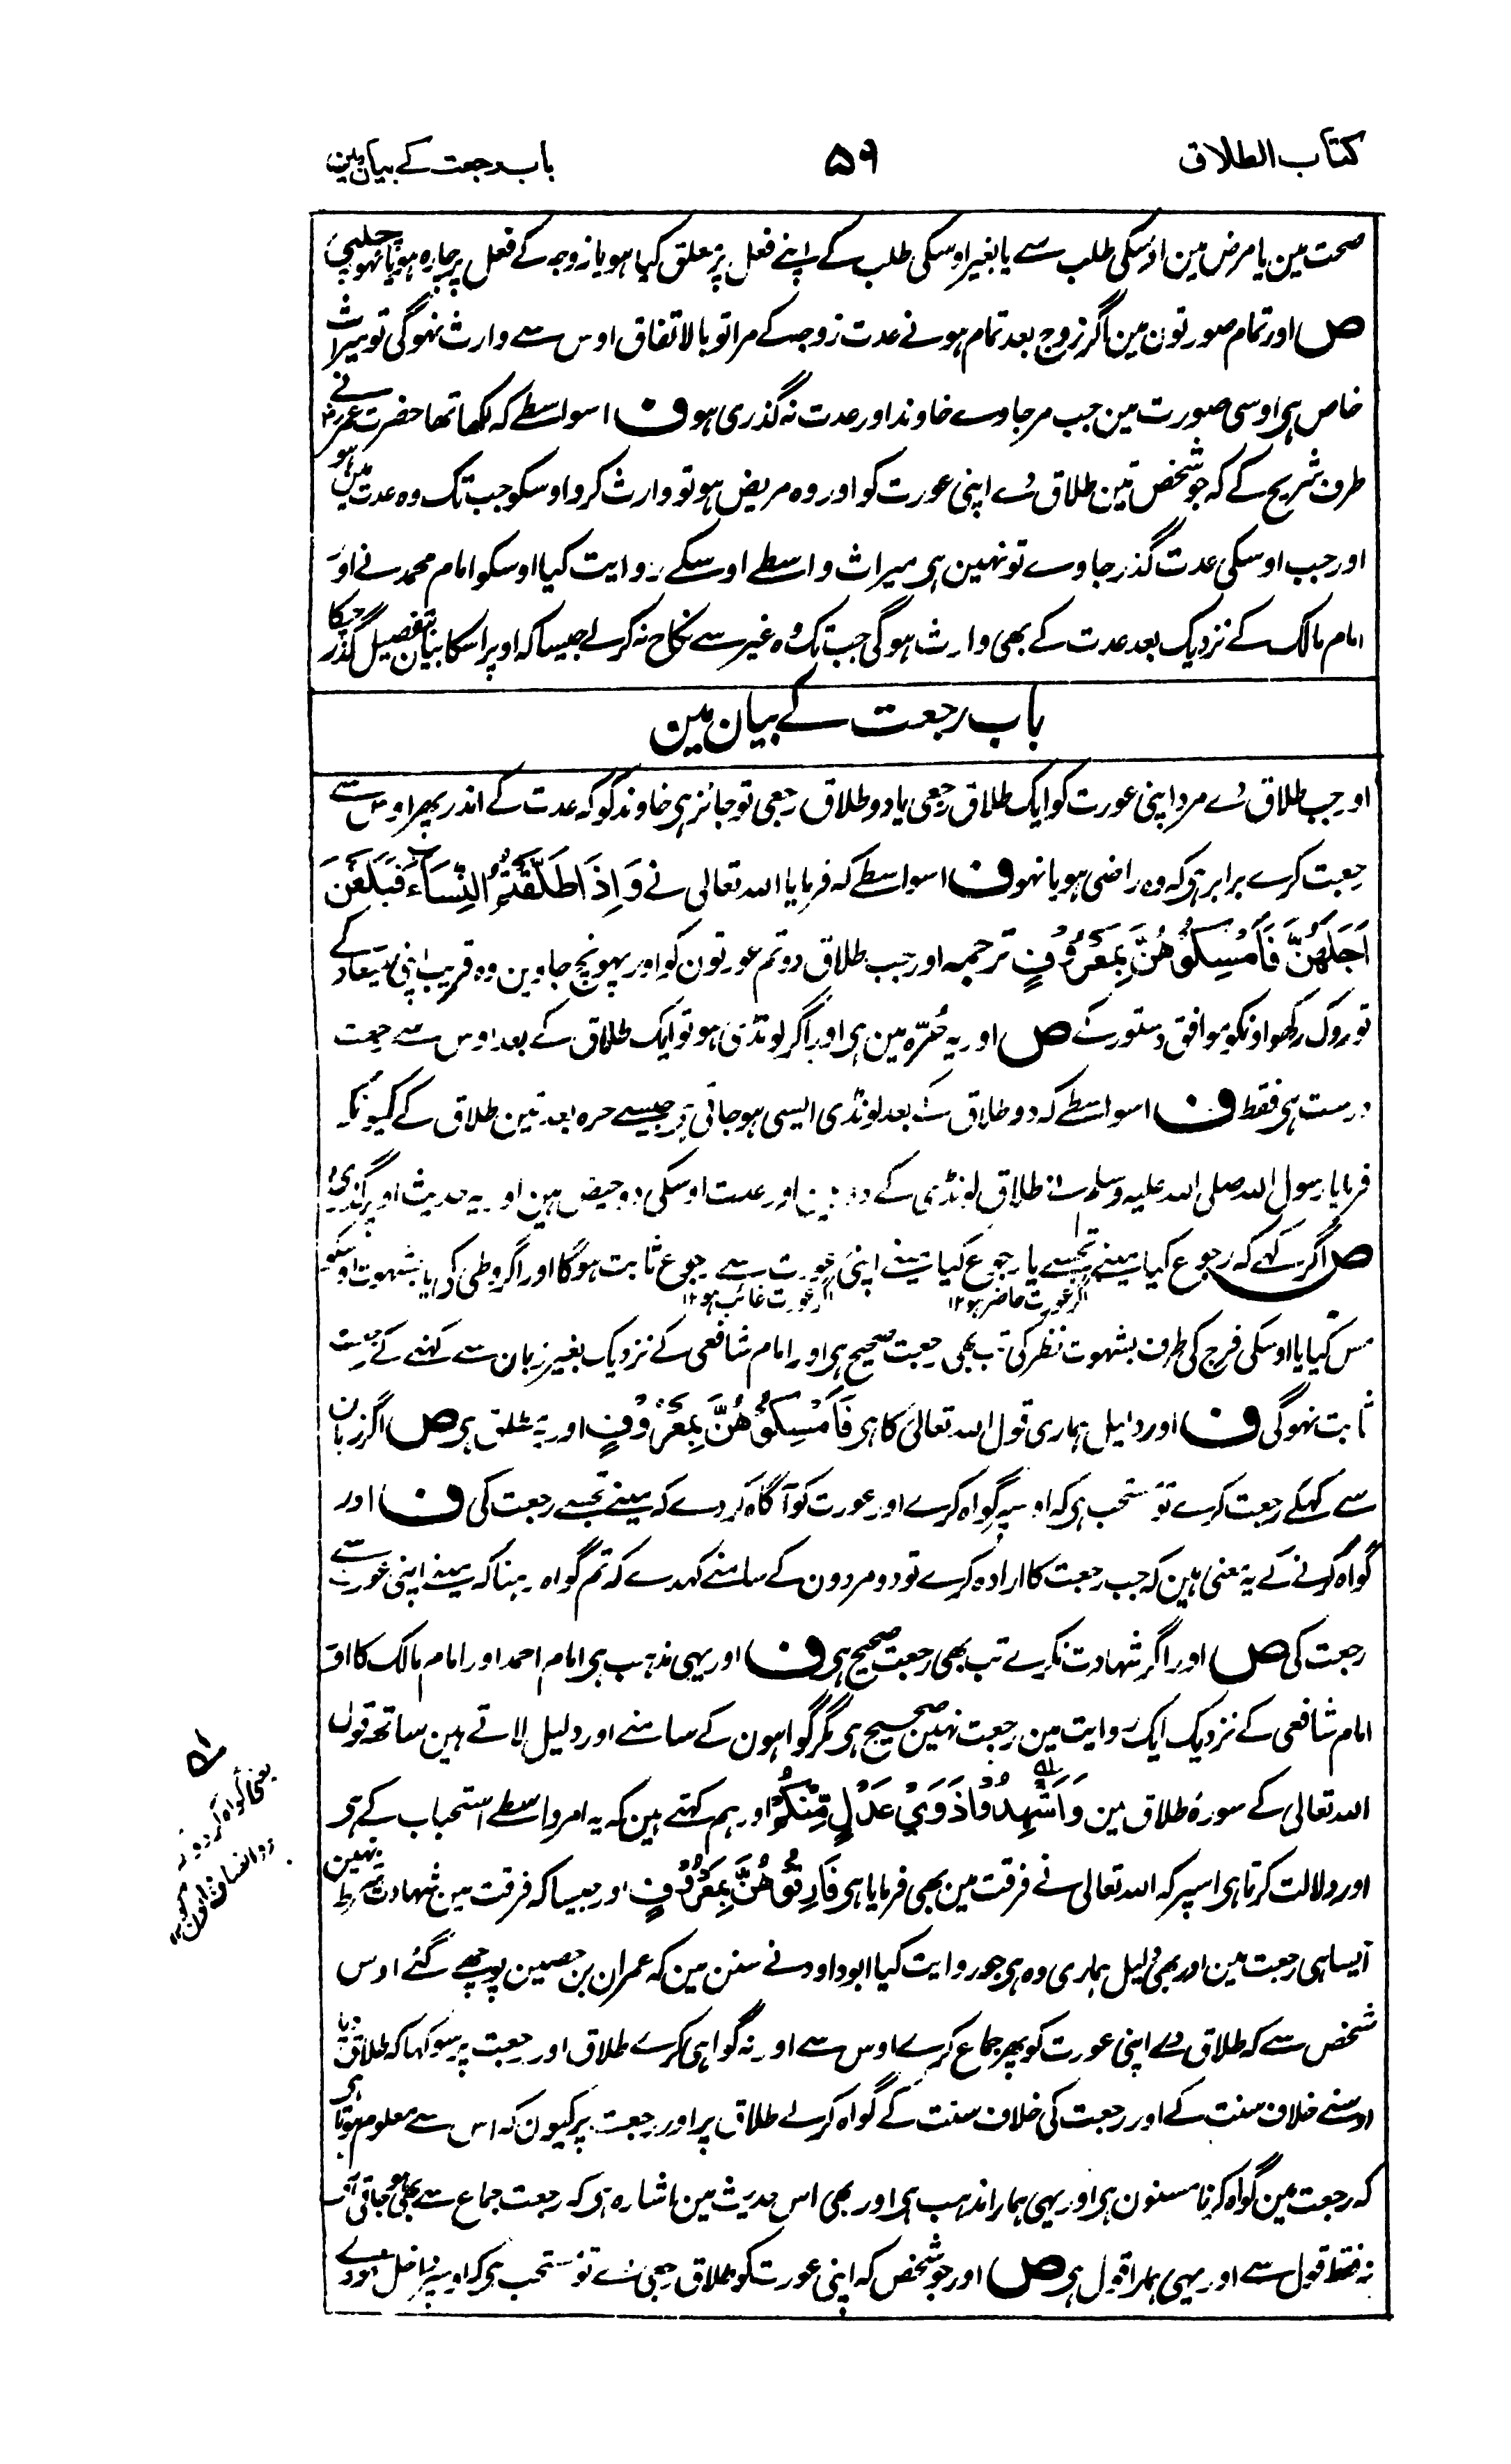 کتاب الطلاق
۵۹
باب رجعت کے بیان مین
صحت مین یا مرض مین اوسکی طلب سے یا بغیر اوسکی طلب کے اپنے فعل پر معلق کیا ہو یا زوجہ کے فعل پر چارہ ہو یا نہو چلپی
ص اور تمام صورتون مین اگر زوج بعد تمام ہونے عدت زوجہ کے مرا تو بالاتفاق اوس سے وارث نہوگی تو میراث
خاص ہی اوسی صورت مین جب مرجاوے خاوند اور عدت نہ گذری ہو ف اسواسطے کہ لکھا تھا حضرت عمر نے
طرف شریح کے کہ جو شخص تین طلاق دے اپنی عورت کو اور وہ مریض ہو تو وارث کرو اوسکو جب تک وہ عدت مین ہو
اور جب اوسکی عدت گذر جاوے تو نہین ہی میراث واسطے اوسکے روایت کیا اوسکو امام محمد نے اور
امام مالک کے نزدیک بعد عدت کے بھی وارث ہوگی جب تک وہ غیر سے نکاح نہ کرلے جیسا کہ اوپر اسکا بیان بتفصیل گذر چکا
باب رجعت کے بیان مین
اور جب طلاق دے مرد اپنی عورت کو ایک طلاق رجعی یا دو طلاق رجعی تو جائز ہی خاوند کو کہ عدت کے اندر پھر اوس سے
رجعت کرے برابر ہی کہ وہ راضی ہو یا نہو ف اسواسطے کہ فرمایا اللہ تعالی نے وَاِذَا طَلَّقْتُمُ النِّسَاءَ فَبَلَغْنَ
اَجَلَهُنَّ فَاَمْسِكُوْهُنَّ بِمَعْرُوْفٍ ترجمہ اور جب طلاق دو تم عورتون کو اور پہونچ جاوین وہ قریب اپنی میعاد کے
تو روک رکھو اونکو موافق دستور کے ص اور یہ حُرّہ مین ہی اور اگر لونڈی ہو تو ایک طلاق کے بعد اوس سے رجعت
درست ہی فقط ف اسواسطے کہ دو طلاق کے بعد لونڈی ایسی ہوجاتی ہی جیسے حرہ بعد تین طلاق کے کیونکہ
فرمایا رسول اللہ صلی اللہ علیہ وسلم نے طلاق لونڈی کے دو ہین اور عدت اوسکی دو حیض ہین اور یہ حدیث اوپر گذری
ص اگر کہے کہ رجوع کیا مینے تجھسے یا رجوع کیا مینے اپنی عورت سے رجوع ثابت ہوگا اور اگر وطی کی یا بشہوت اوسکو
اگر عورت حاضر ہو ۱۲
اگر عورت غائب ہو ۱۲
مس کیا یا اوسکی فرج کی طرف بشہوت نظر کی تب بھی رجعت صحیح ہی اور امام شافعی کے نزدیک بغیر زبان سے کہنے کے رجعت
ثابت نہوگی ف اور دلیل ہماری قول اللہ تعالی کا ہی فَاَمْسِكُوْهُنَّ بِمَعْرُوْفٍ اور یہ مطلق ہی ص اگر زبان
سے کہکے رجعت کرے تو مستحب ہی کہ اوسپر گواہ کرے اور عورت کو آگاہ کردے کہ مینے تجھسے رجعت کی ف اور
گواہ کرنے کے یہ معنی ہین کہ جب رجعت کا ارادہ کرے تو دو مردون کے سامنے کہدے کہ تم گواہ رہنا کہ مینے اپنی عورت سے
رجعت کی ص اور اگر شہادت نکرے تب بھی رجعت صحیح ہی ف اور یہی مذہب ہی امام احمد اور امام مالک کا اور
امام شافعی کے نزدیک ایک روایت مین رجعت نہین صحیح ہی مگر گواہون کے سامنے اور دلیل لاتے ہین ساتھ قول
اللہ تعالی کے سورۂ طلاق مین وَاَشْهِدُوْا ذَوَيْ عَدْلٍ مِّنْكُمْ اور ہم کہتے ہین کہ یہ امر واسطے استحباب کے ہی
اور دلالت کرتا ہی اسپر کہ اللہ تعالی نے فرقت مین بھی فرمایا ہی فَارِقُوْهُنَّ بِمَعْرُوْفٍ اور جیسا کہ فرقت مین شہادت شرط نہین
ایسا ہی رجعت مین اور بھی دلیل ہماری وہ ہی جو روایت کیا ابوداود نے سنن مین کہ عمران بن حصین پوچھے گئے اوس
شخص سے کہ طلاق دے اپنی عورت کو پھر جماع کرے اوس سے اور نہ گواہی کرے طلاق اور رجعت پر سو کہا کہ طلاق دیا
اوسنے خلاف سنت کے اور رجعت کی خلاف سنت کے گواہ کرلے طلاق پر اور رجعت پر کیون کہ اس سے معلوم ہوتا ہی
کہ رجعت مین گواہ کرنا مسنون ہی اور یہی ہمارا مذہب ہی اور بھی اس حدیث مین اشارہ ہی کہ رجعت جماع سے بھی ہوجاتی ہی
نہ فقط قول سے اور یہی ہمارا قول ہی ص اور جو شخص کہ اپنی عورت کو طلاق رجعی دے تو مستحب ہی کہ اوسپر داخل نہووے
یعنی گواہ کردو